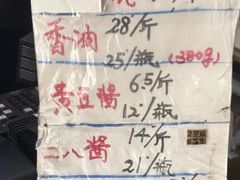 香油 28/斤
25/瓶 (380g)
黄豆酱 6.5/斤
12/瓶
二八酱 14/斤
21/瓶